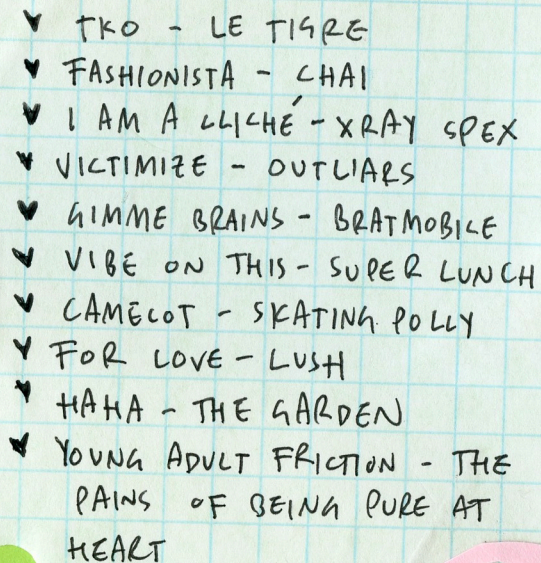 TKO - LE TIGRE
FASHIONISTA - CHAI
I AM A CLICHÉ - XRAY SPEX
VICTIMIZE - OUTLIARS
GIMME BRAINS - BRATMOBILE
VIBE ON THIS - SUPER LUNCH
CAMELOT - SKATING POLLY
FOR LOVE - LUSH
HAHA - THE GARDEN
YOUNG ADULT FRICTION - THE
PAINS OF BEING PURE AT
HEART